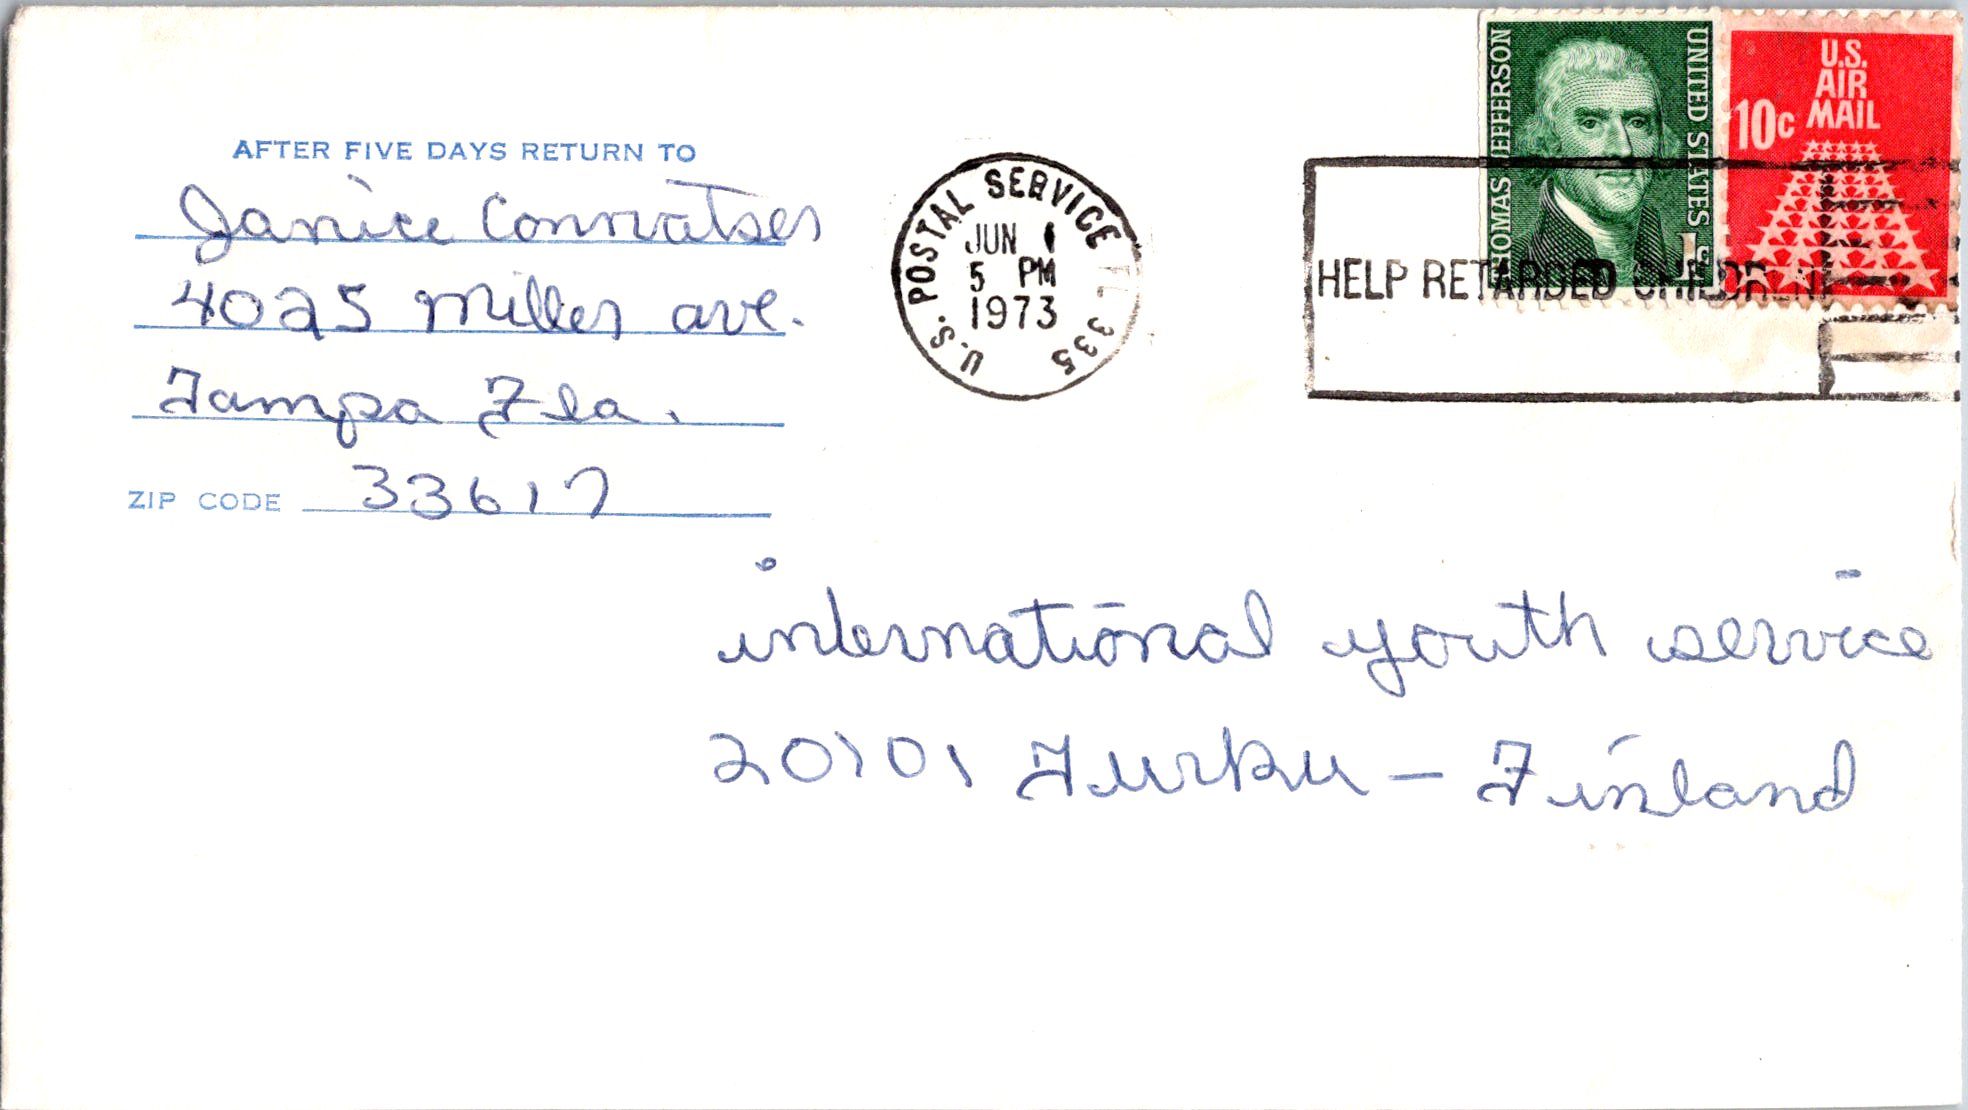 AFTER FIVE DAYS RETURN TO
Janice
4025 Miller ave.
Tampa Fla.
ZIP CODE 33617
U.S. POSTAL SERVICE FL 335
JUN 1
5 PM
1973
HELP RETARDED CHILDREN
THOMAS JEFFERSON
UNITED STATES
1c
U.S.
AIR
MAIL
10c
international youth service
20101 Turku - Finland